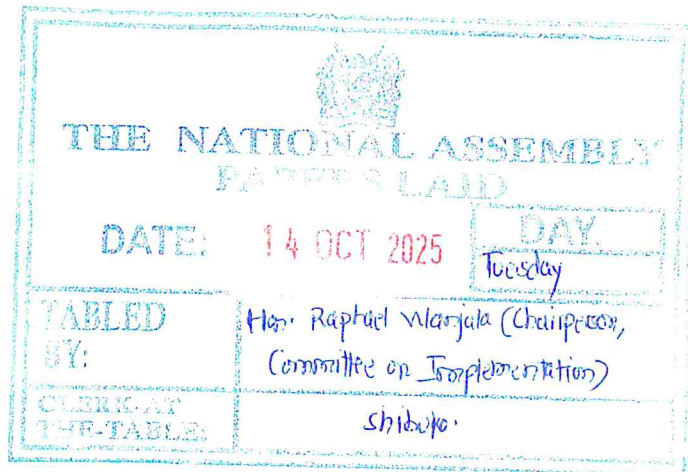 THE NATIONAL ASSEMBLY
PAPERS LAID
DATE: 14 OCT 2025 DAY.
Tuesday
TABLED BY: Hon. Raphael Wanjala (Chairperson,
Committee on Implementation)
CLERK-AT THE-TABLE: